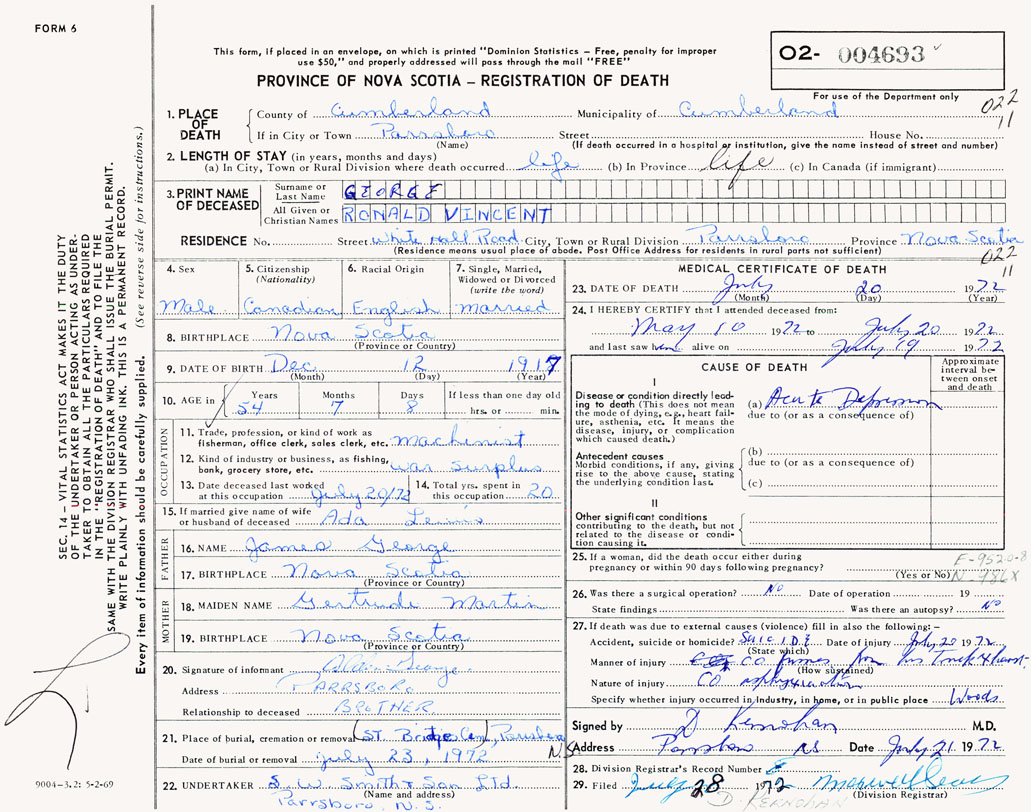 FORM 6
This form, if placed in an envelope, on which is printed "Dominion Statistics – Free, penalty for improper
use $50," and properly addressed will pass through the mail "FREE"
PROVINCE OF NOVA SCOTIA – REGISTRATION OF DEATH
O2- 004693
For use of the Department only
022
11
1. PLACE OF DEATH County of Cumberland Municipality of Cumberland
If in City or Town Parrsboro Street House No.
(Name) (If death occurred in a hospital or institution, give the name instead of street and number)
2. LENGTH OF STAY (in years, months and days)
(a) In City, Town or Rural Division where death occurred life (b) In Province life (c) In Canada (if immigrant)
3. PRINT NAME OF DECEASED Surname or Last Name GEORGE
All Given or Christian Names RONALD VINCENT
RESIDENCE No. Street White Hall Road City, Town or Rural Division Parrsboro Province Nova Scotia
(Residence means usual place of abode. Post Office Address for residents in rural parts not sufficient)
022
11
4. Sex
Male
5. Citizenship
(Nationality)
Canadian
6. Racial Origin
English
7. Single, Married,
Widowed or Divorced
(write the word)
married
8. BIRTHPLACE Nova Scotia
(Province or Country)
9. DATE OF BIRTH Dec 12 1917
(Month) (Day) (Year)
10. AGE in Years Months Days If less than one day old
54 7 8 hrs. or min.
OCCUPATION
11. Trade, profession, or kind of work as
fisherman, office clerk, sales clerk, etc. machinist
12. Kind of industry or business, as fishing,
bank, grocery store, etc. war surplus
13. Date deceased last worked
at this occupation July 20/72
14. Total yrs. spent in
this occupation 20
15. If married give name of wife
or husband of deceased Ada Lewis
FATHER
16. NAME James George
17. BIRTHPLACE Nova Scotia
(Province or Country)
MOTHER
18. MAIDEN NAME Gertrude Martin
19. BIRTHPLACE Nova Scotia
(Province or Country)
20. Signature of informant George
Address PARRSBORO
Relationship to deceased BROTHER
21. Place of burial, cremation or removal ST. Bridget Cem, Parrsboro N.S.
Date of burial or removal July 23, 1972
22. UNDERTAKER S. W. Smith & Son Ltd.
(Name and address)
Parrsboro, N.S.
MEDICAL CERTIFICATE OF DEATH
23. DATE OF DEATH July 20 1972
(Month) (Day) (Year)
24. I HEREBY CERTIFY that I attended deceased from:
May 10 1972 to July 20 1972
and last saw him alive on July 19 1972
CAUSE OF DEATH
Approximate
interval be-
tween onset
and death
I
Disease or condition directly lead-
ing to death (This does not mean
the mode of dying, e.g., heart fail-
ure, asthenia, etc. It means the
disease, injury, or complication
which caused death.)
(a) Acute Depression
due to (or as a consequence of)
Antecedent causes
Morbid conditions, if any, giving
rise to the above cause, stating
the underlying condition last.
(b)
due to (or as a consequence of)
(c)
II
Other significant conditions
contributing to the death, but not
related to the disease or condi-
tion causing it.
25. If a woman, did the death occur either during
pregnancy or within 90 days following pregnancy?
(Yes or No)
E-9520-8
N-986X
26. Was there a surgical operation? No Date of operation 19
State findings Was there an autopsy? No
27. If death was due to external causes (violence) fill in also the following: –
Accident, suicide or homicide? SUICIDE Date of injury July 20 1972
(State which)
Manner of injury CO fumes from his Truck exhaust
(How sustained)
Nature of injury CO asphyxiation
Specify whether injury occurred in Industry, in home, or in public place Woods
Signed by D Kernohan M.D.
Address Parrsboro NS Date July 21 1972
28. Division Registrar's Record Number
29. Filed July 28 1972
(Division Registrar)
D. KERNOHAN
SEC. 14 – VITAL STATISTICS ACT MAKES IT THE DUTY
OF THE UNDERTAKER OR PERSON ACTING AS UNDER-
TAKER TO OBTAIN ALL THE PARTICULARS REQUIRED
IN THE "REGISTRATION OF DEATH" AND TO FILE THE
SAME WITH THE DIVISION REGISTRAR WHO SHALL ISSUE THE BURIAL PERMIT.
WRITE PLAINLY WITH UNFADING INK. THIS IS A PERMANENT RECORD.
Every item of information should be carefully supplied. (See reverse side for instructions.)
9004–3.2: 5-2-69